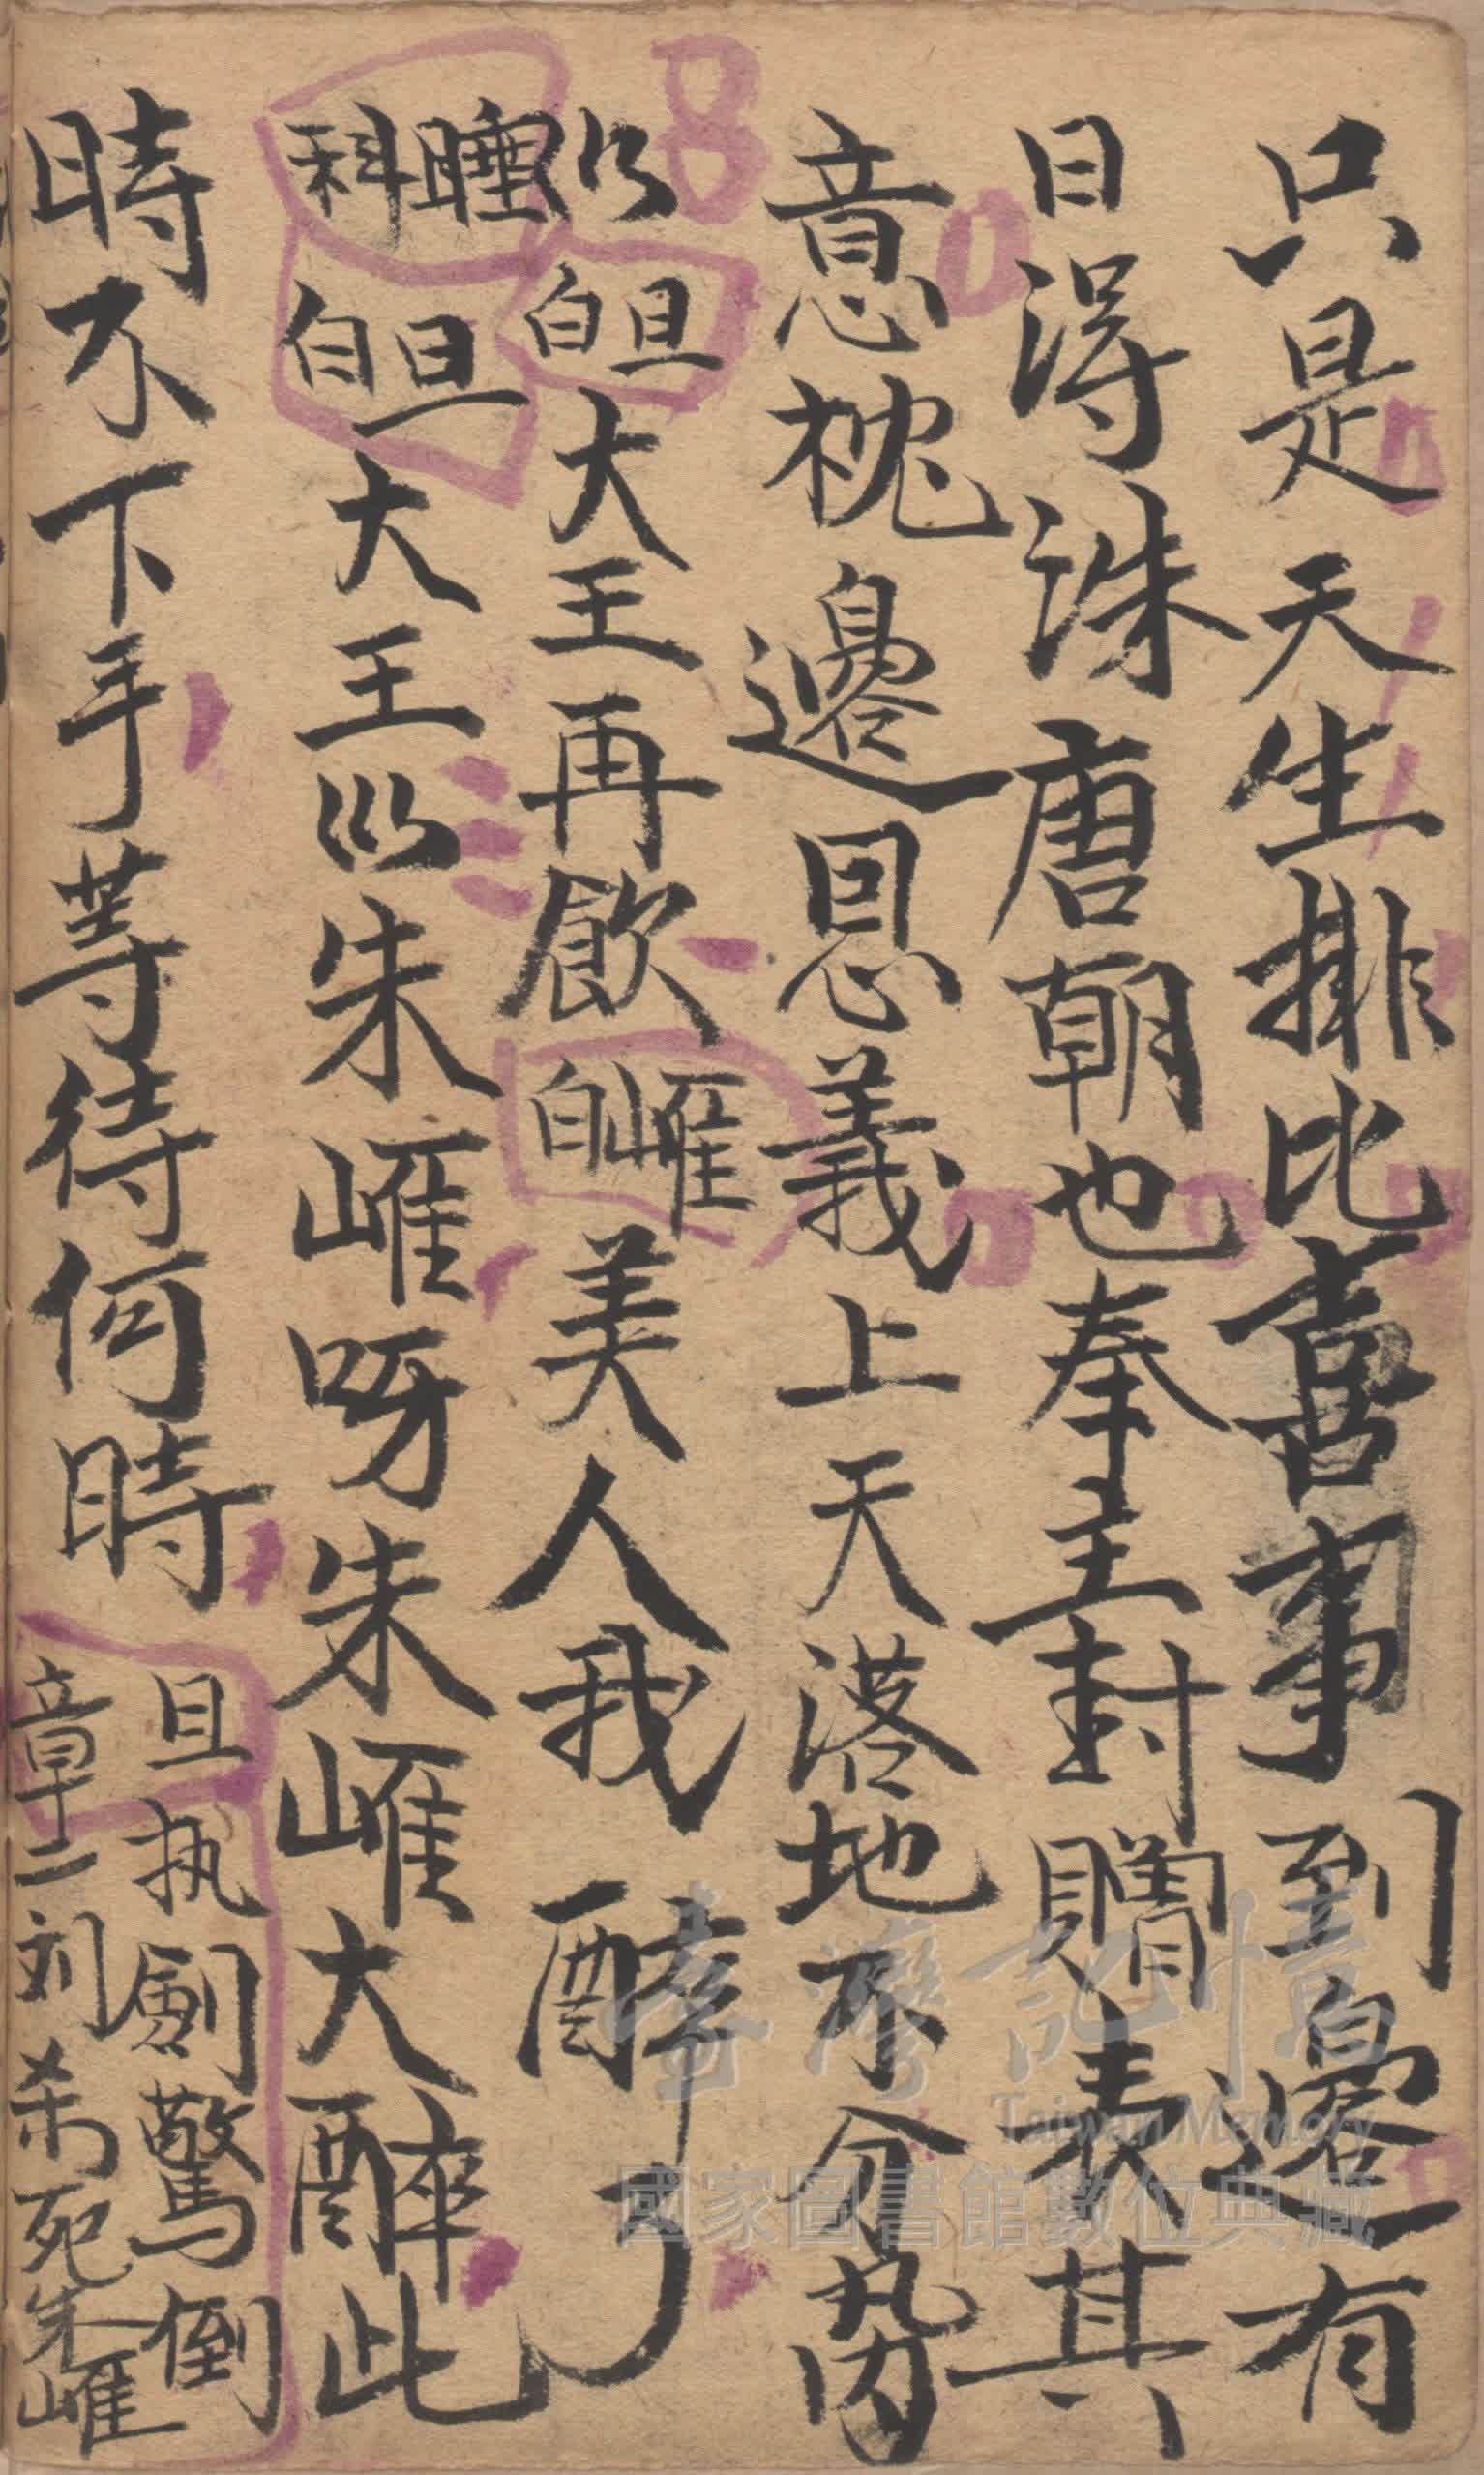 只是天生排比喜事到邊有
日得洙唐朝也奉主封贈表其
意枕邊恩義上天落地不分
以旦白大王再飲嶉白美人我醉了
睡科旦白大王巛朱嶉呀朱嶉大醉此
時不下手等待何時旦执劍驚倒
章二刘杀死朱嶉
臺灣記憶
Taiwan Memory
國家圖書館數位典藏